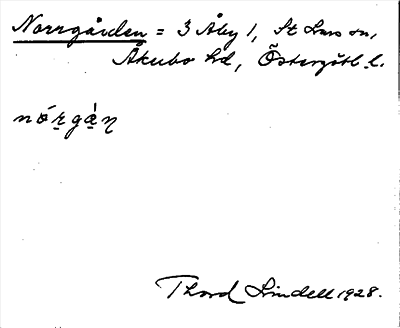 Norrgården = 3 Åby 1, St Lars sn,
Åkerbo hd, Östergötl. l.
nórgàṇ
Thord Lindell 1928.